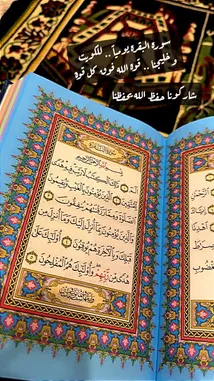 سورة البقرة يومياً .. للكويت
و خليجنا .. قوة الله فوق كل قوة
شاركونا حفظ الله
بِسْمِ اللَّهِ الرَّحْمَٰنِ الرَّحِيمِ
الٓمٓ ۝ ذَٰلِكَ الْكِتَابُ لَا رَيْبَ فِيهِ هُدًى
لِّلْمُتَّقِينَ ۝ الَّذِينَ يُؤْمِنُونَ بِالْغَيْبِ وَيُقِيمُونَ
الصَّلَاةَ وَمِمَّا رَزَقْنَاهُمْ يُنفِقُونَ ۝
وَالَّذِينَ يُؤْمِنُونَ بِمَا أُنزِلَ إِلَيْكَ وَمَا أُنزِلَ مِن
قَبْلِكَ وَبِالْآخِرَةِ هُمْ يُوقِنُونَ ۝ أُولَٰئِكَ عَلَىٰ
هُدًى مِّن رَّبِّهِمْ وَأُولَٰئِكَ هُمُ الْمُفْلِحُونَ ۝